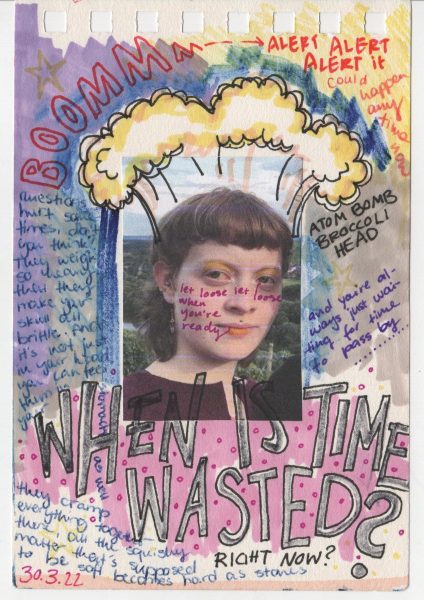 BOOMMMm
ALERT ALERT
ALERT it
could
happen
any
time
now
ATOM BOMB
BROCCOLI
HEAD
Questions
hurt some
times don't
you think?
They weigh
so heavy
that they
make your
skull all
brittle. And
it's not just
in your head
you can feel
them in
your
stomach as
let loose let loose
when
you're
ready
and you're al-
ways just wai-
ting for time
to pass by............
WHEN IS TIME
WASTED?
RIGHT NOW?
they cramp
everything together
there. All the squishy
matter that's supposed
to be soft becomes hard as stones
30.3.22